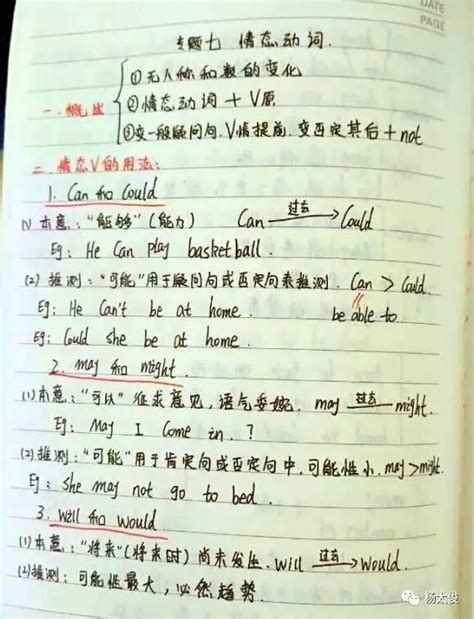 DATE
PAGE
专题七 情态动词.
①无人称和数的变化
一.概述 ②情态动词+V原
③变一般疑问句,V情提前.变否定其后+not
二.情态V的用法:
1. Can和Could
(1)本意:"能够"(能力) Can 过去 Could
Eg: He Can play basketball.
(2)推测:"可能"用于疑问句或否定句表推测. Can > Could
Eg: He Can't be at home. be able to
Eg: Could she be at home.
2. may和might.
(1)本意:"可以"征求意见,语气委婉. may 过去 might.
Eg: May I Come in.?
(2)推测:"可能"用于肯定句或否定句中,可能性小. may>might.
Eg: she may not go to bed.
3. Will和would
(1)本意:"将来"(将来时)尚未发生. will 过去 would.
(2)推测:可能性最大,必然趋势.
杨太俊